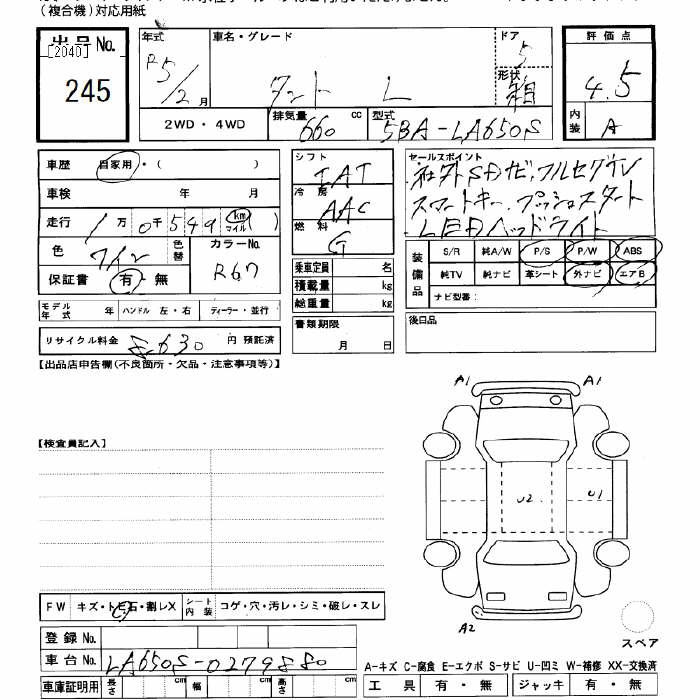 (複合機)対応用紙
出品 No.
[2040]
245
年式
R5/2月
車名・グレード
タント L
ドア
5
形状
箱
2WD・4WD
排気量 660 cc
型式 5BA-LA650S
評価点
4.5
内装
A
車歴 自家用・( )
車検 年 月
走行 1万0千549 km マイル
色 ワイン 色替
カラーNo.
R67
保証書 有・無
モデル年式 年 ハンドル 左・右 ディーラー・並行
リサイクル料金 8630 円 預託済
シフト IAT
冷房 AAC
燃料 G
乗車定員 名
積載量 kg
総重量 kg
書類期限
月 日
セールスポイント
社外SDナビ、フルセグTV
スマートキー、プッシュスタート
LEDヘッドライト
装備品
S/R 純A/W P/S P/W ABS
純TV 純ナビ 革シート 外ナビ エアB
ナビ型番:
後日品
【出品店申告欄(不良箇所・欠品・注意事項等)】
A1 A1
【検査員記入】
U2 U1
FW キズ・トビ石・割レX
シート内装 コゲ・穴・汚レ・シミ・破レ・スレ
A2
スペア
登録 No.
車台 No. LA650S-0279880
車庫証明用 長さ cm 幅 cm 高さ cm
A-キズ C-腐食 E-エクボ S-サビ U-凹ミ W-補修 XX-交換済
工具 有・無 ジャッキ 有・無